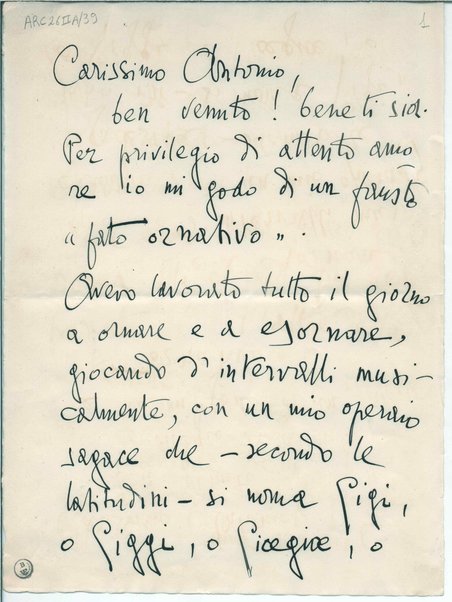 ARC26IIA/39
1
Carissimo Antonio,
ben venuto! bene ti sia.
Per privilegio di attento amo
re io mi godo di un fausto
"fato ornativo".
Avevo lavorato tutto il giorno
a ornare e a esornare,
giocando d'intervalli musi-
calmente, con un mio operaio
sagace che – secondo le
latitudini – si noma Gigi,
o Giggi, o Gicegixe, o